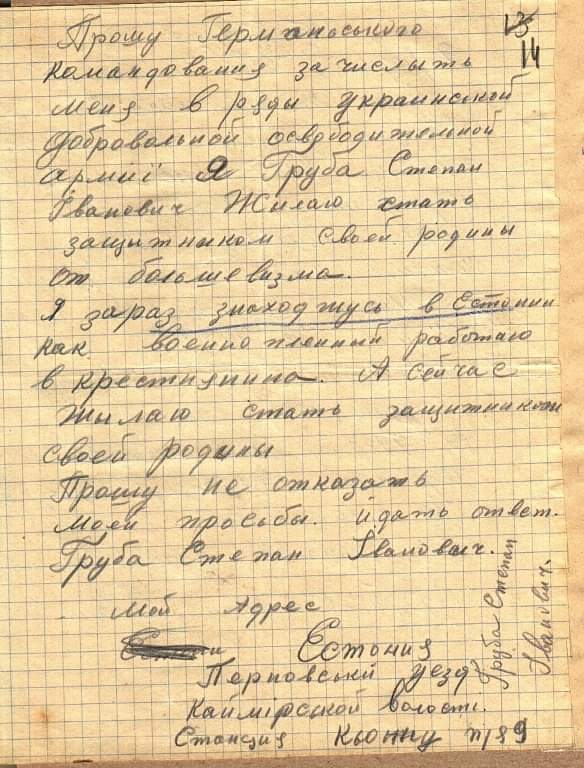 13
14
Прошу Германьського
командования зачислыть
меня в ряды украинской
добровольной освободительной
армиї Я Груба Степан
Іванович Жилаю стать
защытныком своей родины
от большевизма.
я зараз знаходжусь в Естонии
как военно пленный работаю
в крестиянина. А сейчас
жылаю стать защитником
своей родины
Прошу не отказать
моей просьбы. й дать ответ.
Груба Степан Іванович.
Груба Степан
Іванович.
Мой Адрес
Естония
Перновській уезд
волости.
Станция п/я 9